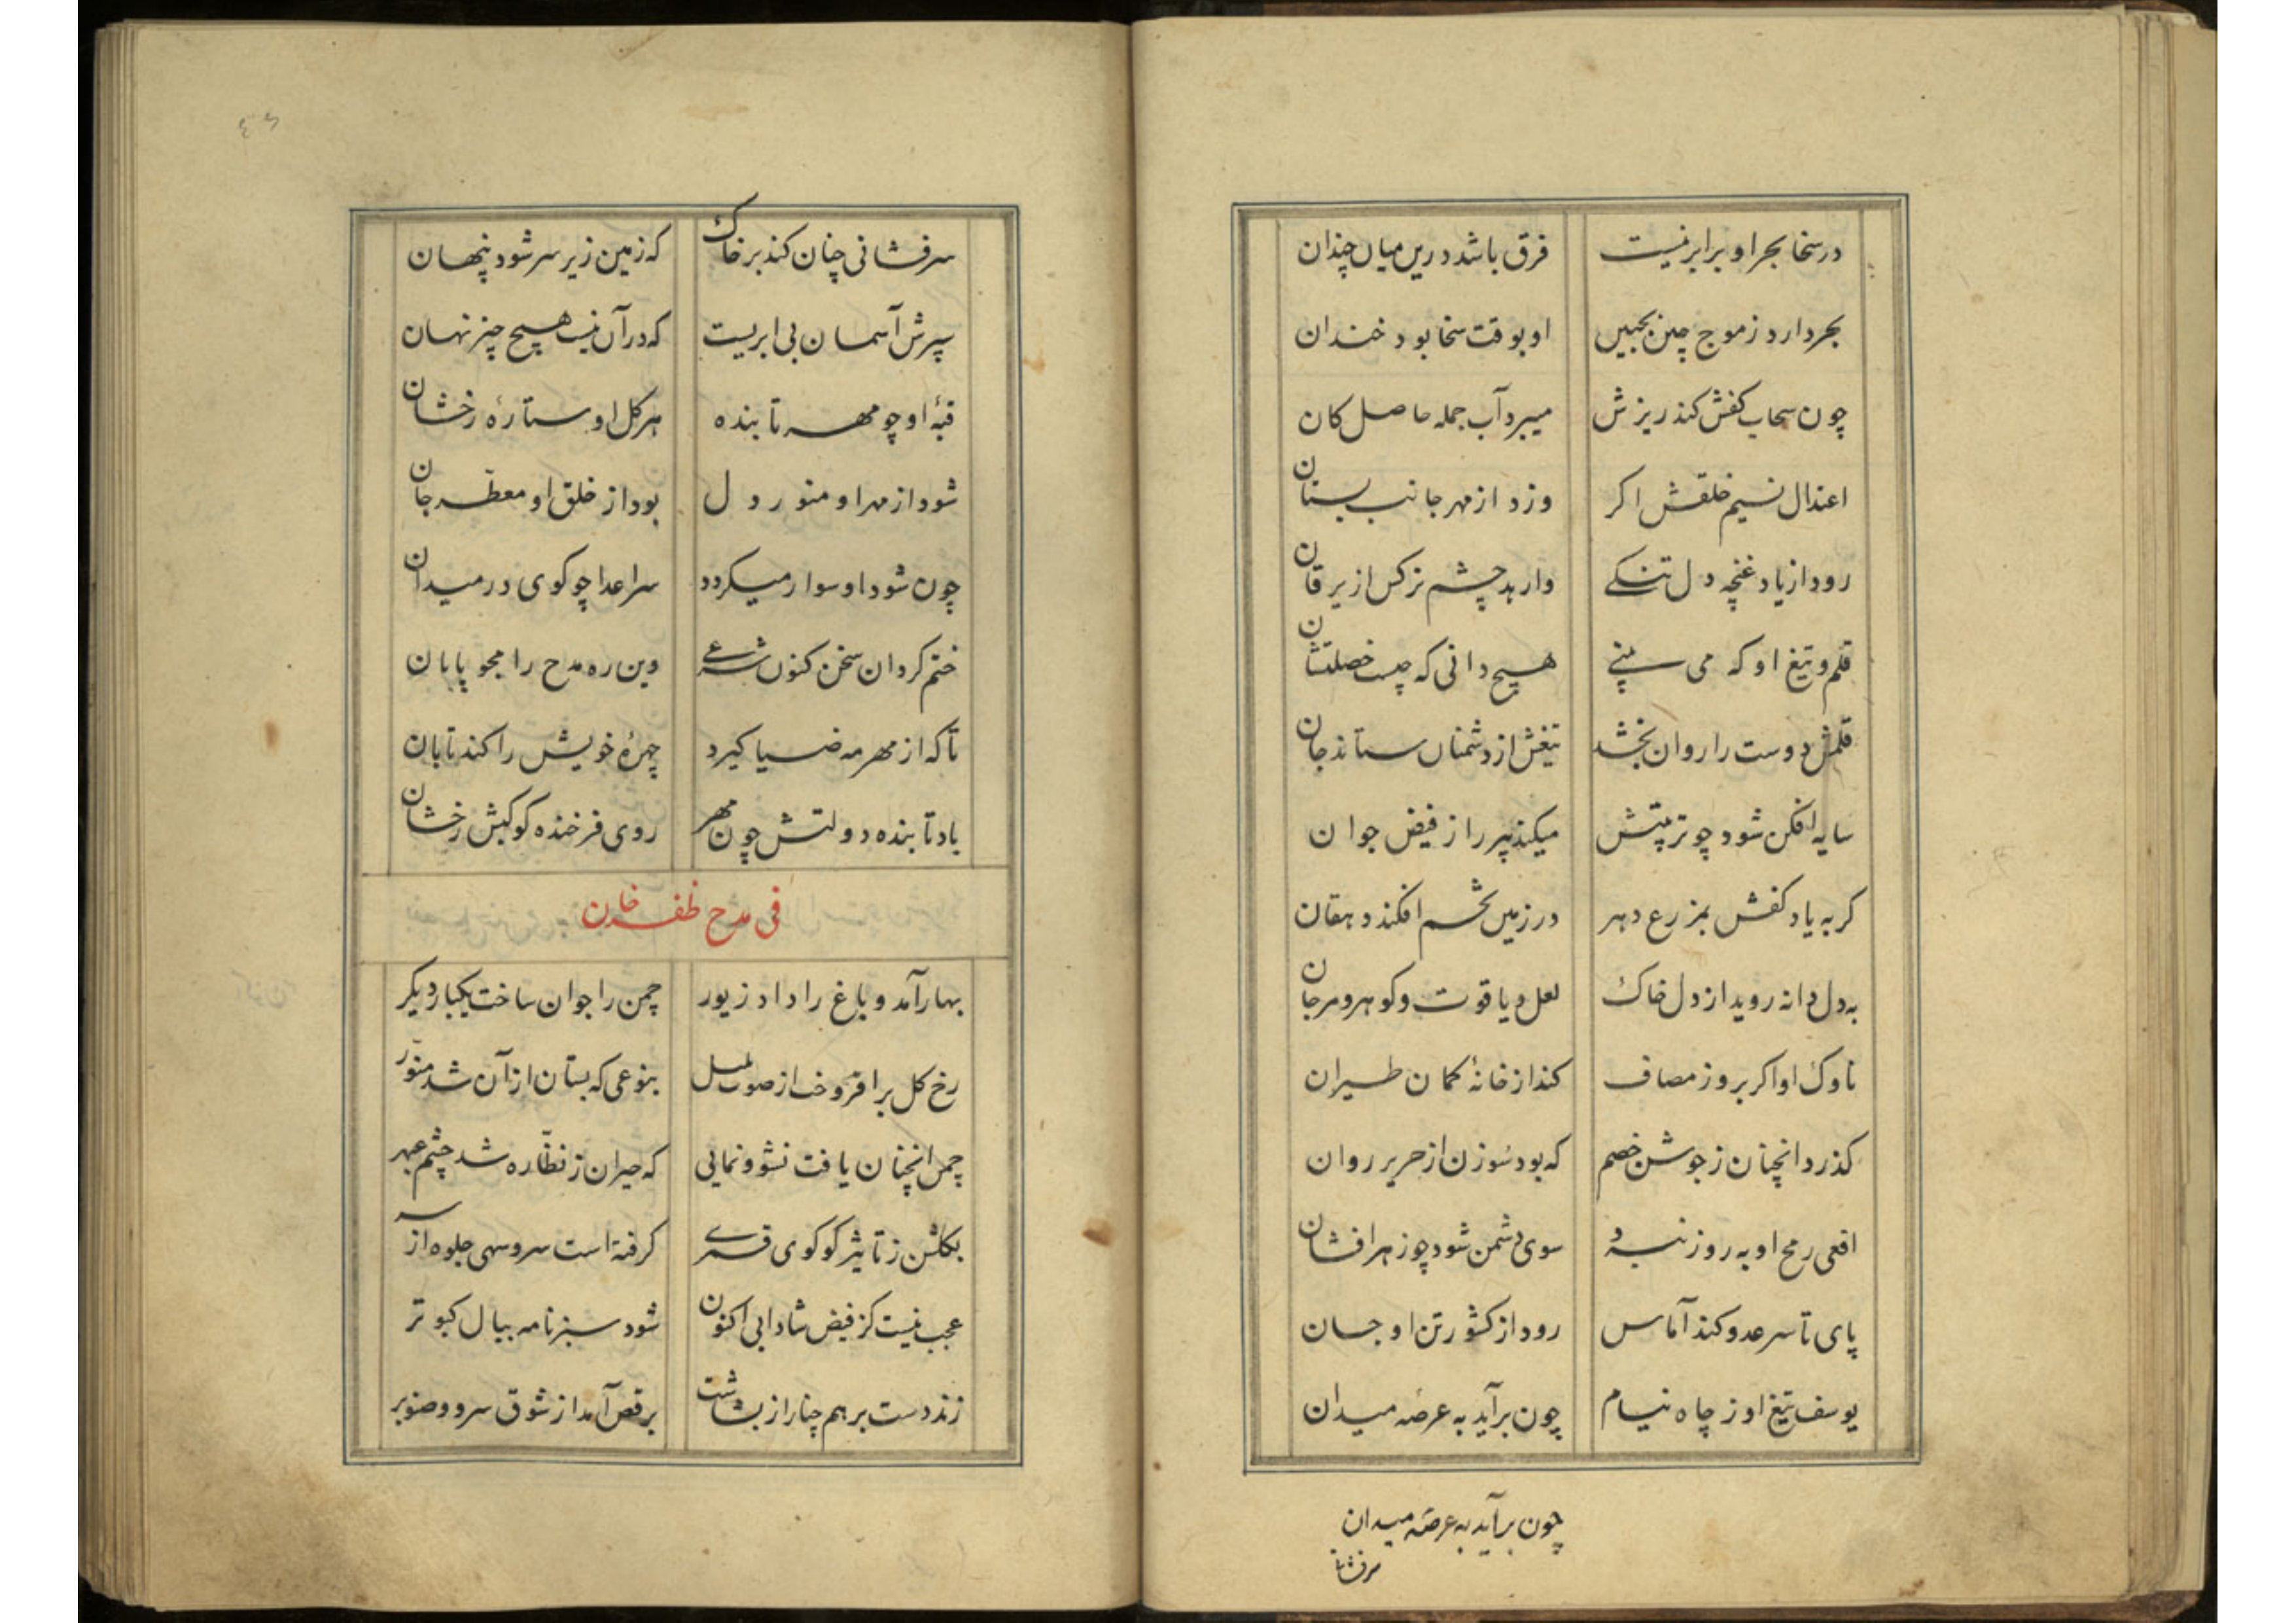 در سخا بحر او برابر نیست فرق باشد درین میان چندان
بحر دارد ز موج چین بجبین او بوقت سخا بود خندان
چون سحاب کفش کند ریزش میبرد آب جمله حاصل کان
اعتدال نسیم خلقش اکر وزد از مهر جانب بستان
رود از یاد غنچه دل تنکے وارهد چشم نرکس از یرقان
قلم و تیغ او که می بینے هیچ دانی که چیست خصلتشان
قلمش دوست را روان بخشد تیغش از دشمنان ستاند جان
سایه افکن شود چو تربیتش میکند پیر را ز فیض جوان
کر به یاد کفش بمزرع دهر در زمین تخم افکند دهقان
بدل دانه روید از دل خاک لعل و یاقوت و کوهر و مرجان
ناوک او اکر بروز مصاف کند از خانهٔ کمان طیران
کذرد انچنان ز جوشن خصم که بود سوزن از حریر روان
افعی رمح او به روز نبرد سوی دشمن شود چو زهر افشان
پای تا سر عدو کند آماس رود از کشور تن او جان
یوسف تیغ او ز چاه نیام چون برآید به عرصه میدان
چون برآید به عرصه میدان
سرفشانی
سرفشانی چنان کند بر خاک که زمین زیر سر شود پنهان
سپرش آسمان بی ابریست که در آن نیست هیچ چیز نهان
قبهٔ او چو مهر تابنده هر کل او ستارهٔ رخشان
شود از مهر او منور دل بود از خلق او معطر جان
چون شود او سوار میکردد سر اعدا چو کوی در میدان
ختم کردان سخن کنون شہرے وین ره مدح را مجو پایان
تا که از مهر مه ضیا کیرد چهرهٔ خویش را کند تابان
باد تابنده دولتش چون مهر روی فرخنده کوکبش رخشان
فی مدح ظفر خان
بهار آمد و باغ را داد زیور چمن را جوان ساخت یکبار دیکر
رخ کل برافروخت از صوت بلبل بنوعی که بستان از آن شد منوّر
چمن انچنان یافت نشو و نمایی که حیران ز نظّاره شد چشم عبهر
بکلشن ز تاثیر کوکوی قمرے کرفته است سرو سهی جلوه از سر
عجب نیست کز فیض شادابی اکنون شود سبز نامه ببال کبوتر
زند دست بر هم چنار از بشاشت برقص آمد از شوق سرو و صنوبر